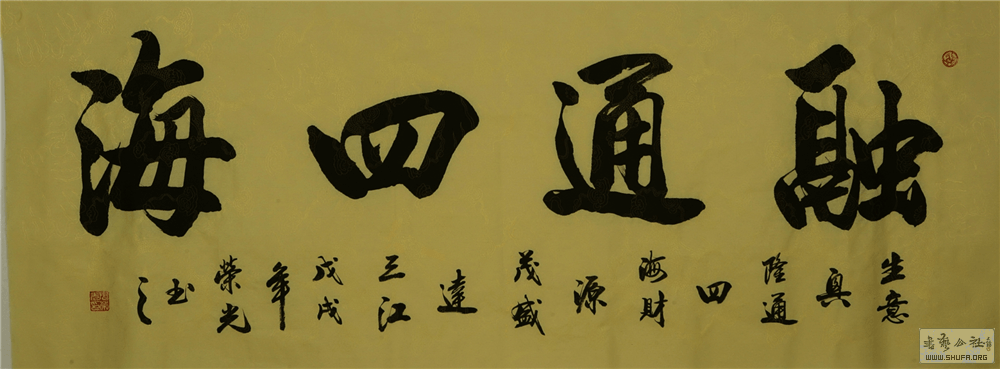 融通四海
生意興隆通四海財源茂盛達三江戊戌年榮光书之
书艺公社
WWW.SHUFA.ORG